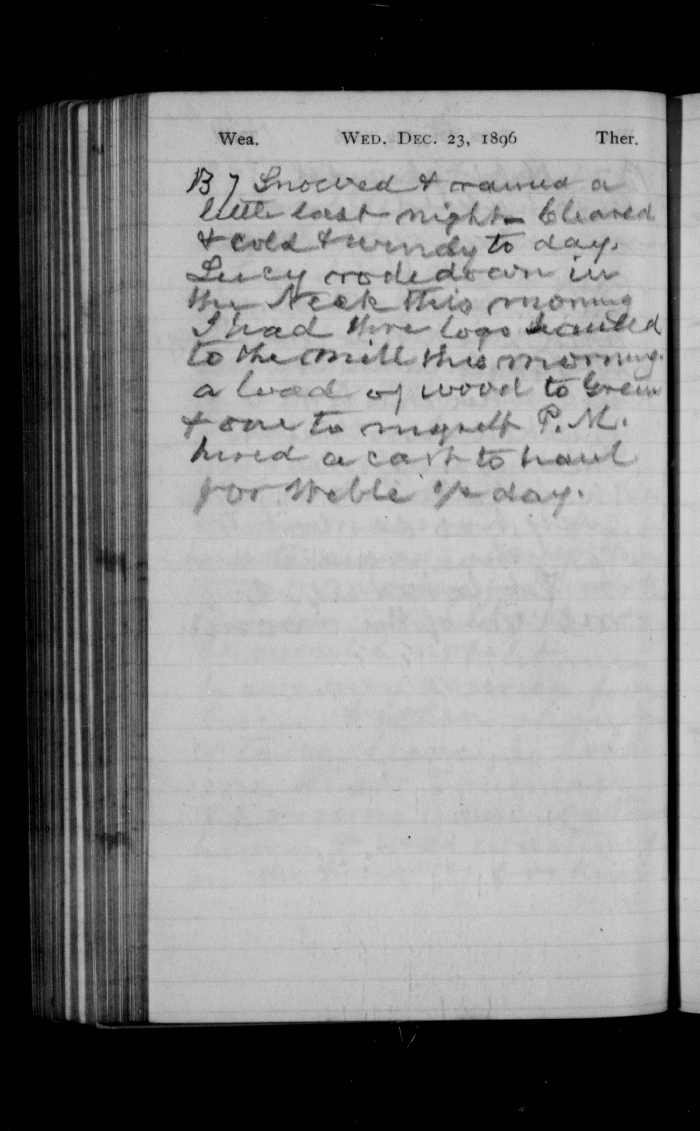 Wea. WED. DEC. 23, 1896 Ther.
B 7 Snowed & rained a
little last night - Cleared
& cold & windy to day.
Lucy rode down in
the Neck this morning
I had thre logs hauled
to the mill this morning.
a load of wood to Green
& one to myself P.M.
hired a cart to haul
for Weble 1/2 day.